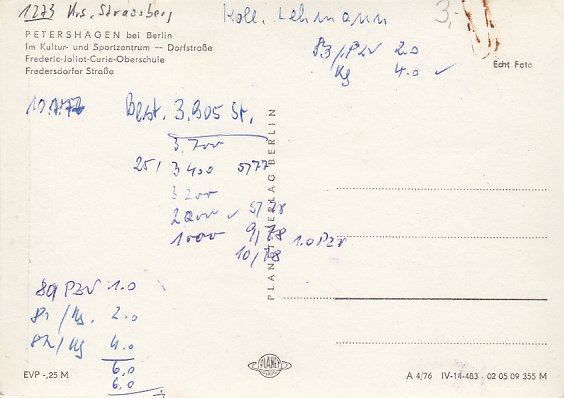 1273 Krs. Strausberg
Koll. Lehmann
3,-
PETERSHAGEN bei Berlin
Im Kultur- und Sportzentrum — Dorfstraße
Frederic-Joliot-Curie-Oberschule
Fredersdorfer Straße
83/PZV 2.0
Kg 4.0 ✓
Echt Foto
Best. 3.905 St.
3.700
25/ 3400 5/77
3200
2000 ✓ 5/78
1000 9/78 1.0 PZV
10/78
PLANET-VERLAG BERLIN
80 PZV 1.0
81/Kg. 2.0
82/Kg 4.0
6.0
6.0
PLANET
EVP -,25 M
A 4/76 IV-14-483 02 05 09 355 M